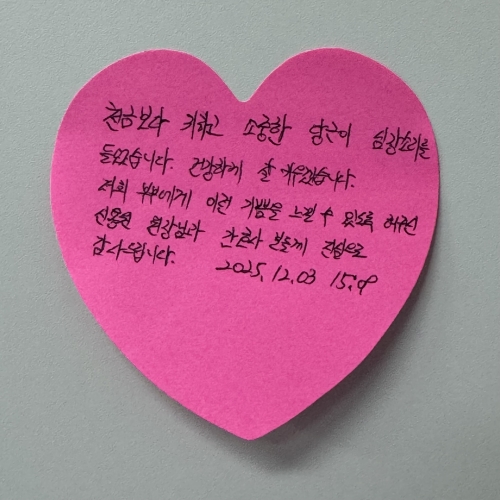 천금보다 귀하고 소중한 당근이 심장소리를
들었습니다. 건강하게 잘 키우겠습니다.
저희 부부에게 이런 기쁨을 느낄 수 있도록 해주신
원장님과 간호사 분들께 진심으로
감사드립니다. 2025.12.03